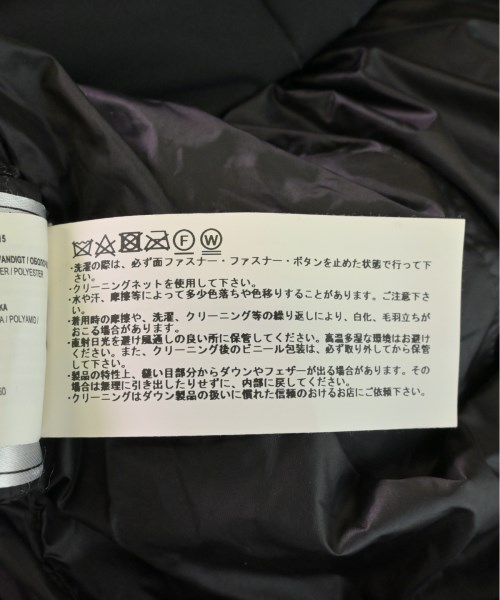 15
VANDIGT / OBGON
ER / POLYESTER
KA
A / POLYAMID /
Ⓕ Ⓦ
・洗濯の際は、必ず面ファスナー・ファスナー・ボタンを止めた状態で行って下
さい。
・クリーニングネットを使用して下さい。
・水や汗、摩擦等によって多少色落ちや色移りすることがあります。ご注意下さ
い。
・着用時の摩擦や、洗濯、クリーニング等の繰り返しにより、白化、毛羽立ちが
おこる場合があります。
・直射日光を避け風通しの良い所に保管してください。高温多湿な環境はお避け
ください。また、クリーニング後のビニール包装は、必ず取り外してから保管
して下さい。
・製品の特性上、縫い目部分からダウンやフェザーが出る場合があります。その
場合は無理に引き出したりせずに、内部に戻してください。
・クリーニングはダウン製品の扱いに慣れた信頼のおけるお店にご依頼下さい。